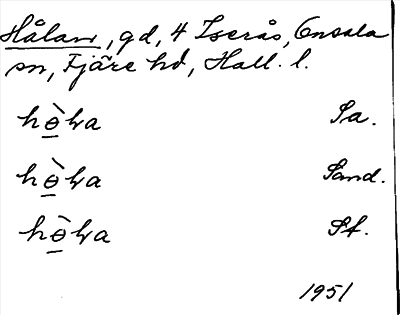 Hålan, gd, 4 Iserås, Onsala
sn, Fjäre hd, Hall. l.
hɵ̀ḷa Sa.
hɵ̀ḷa Sand.
hɵ̀ḷa Sf.
1951